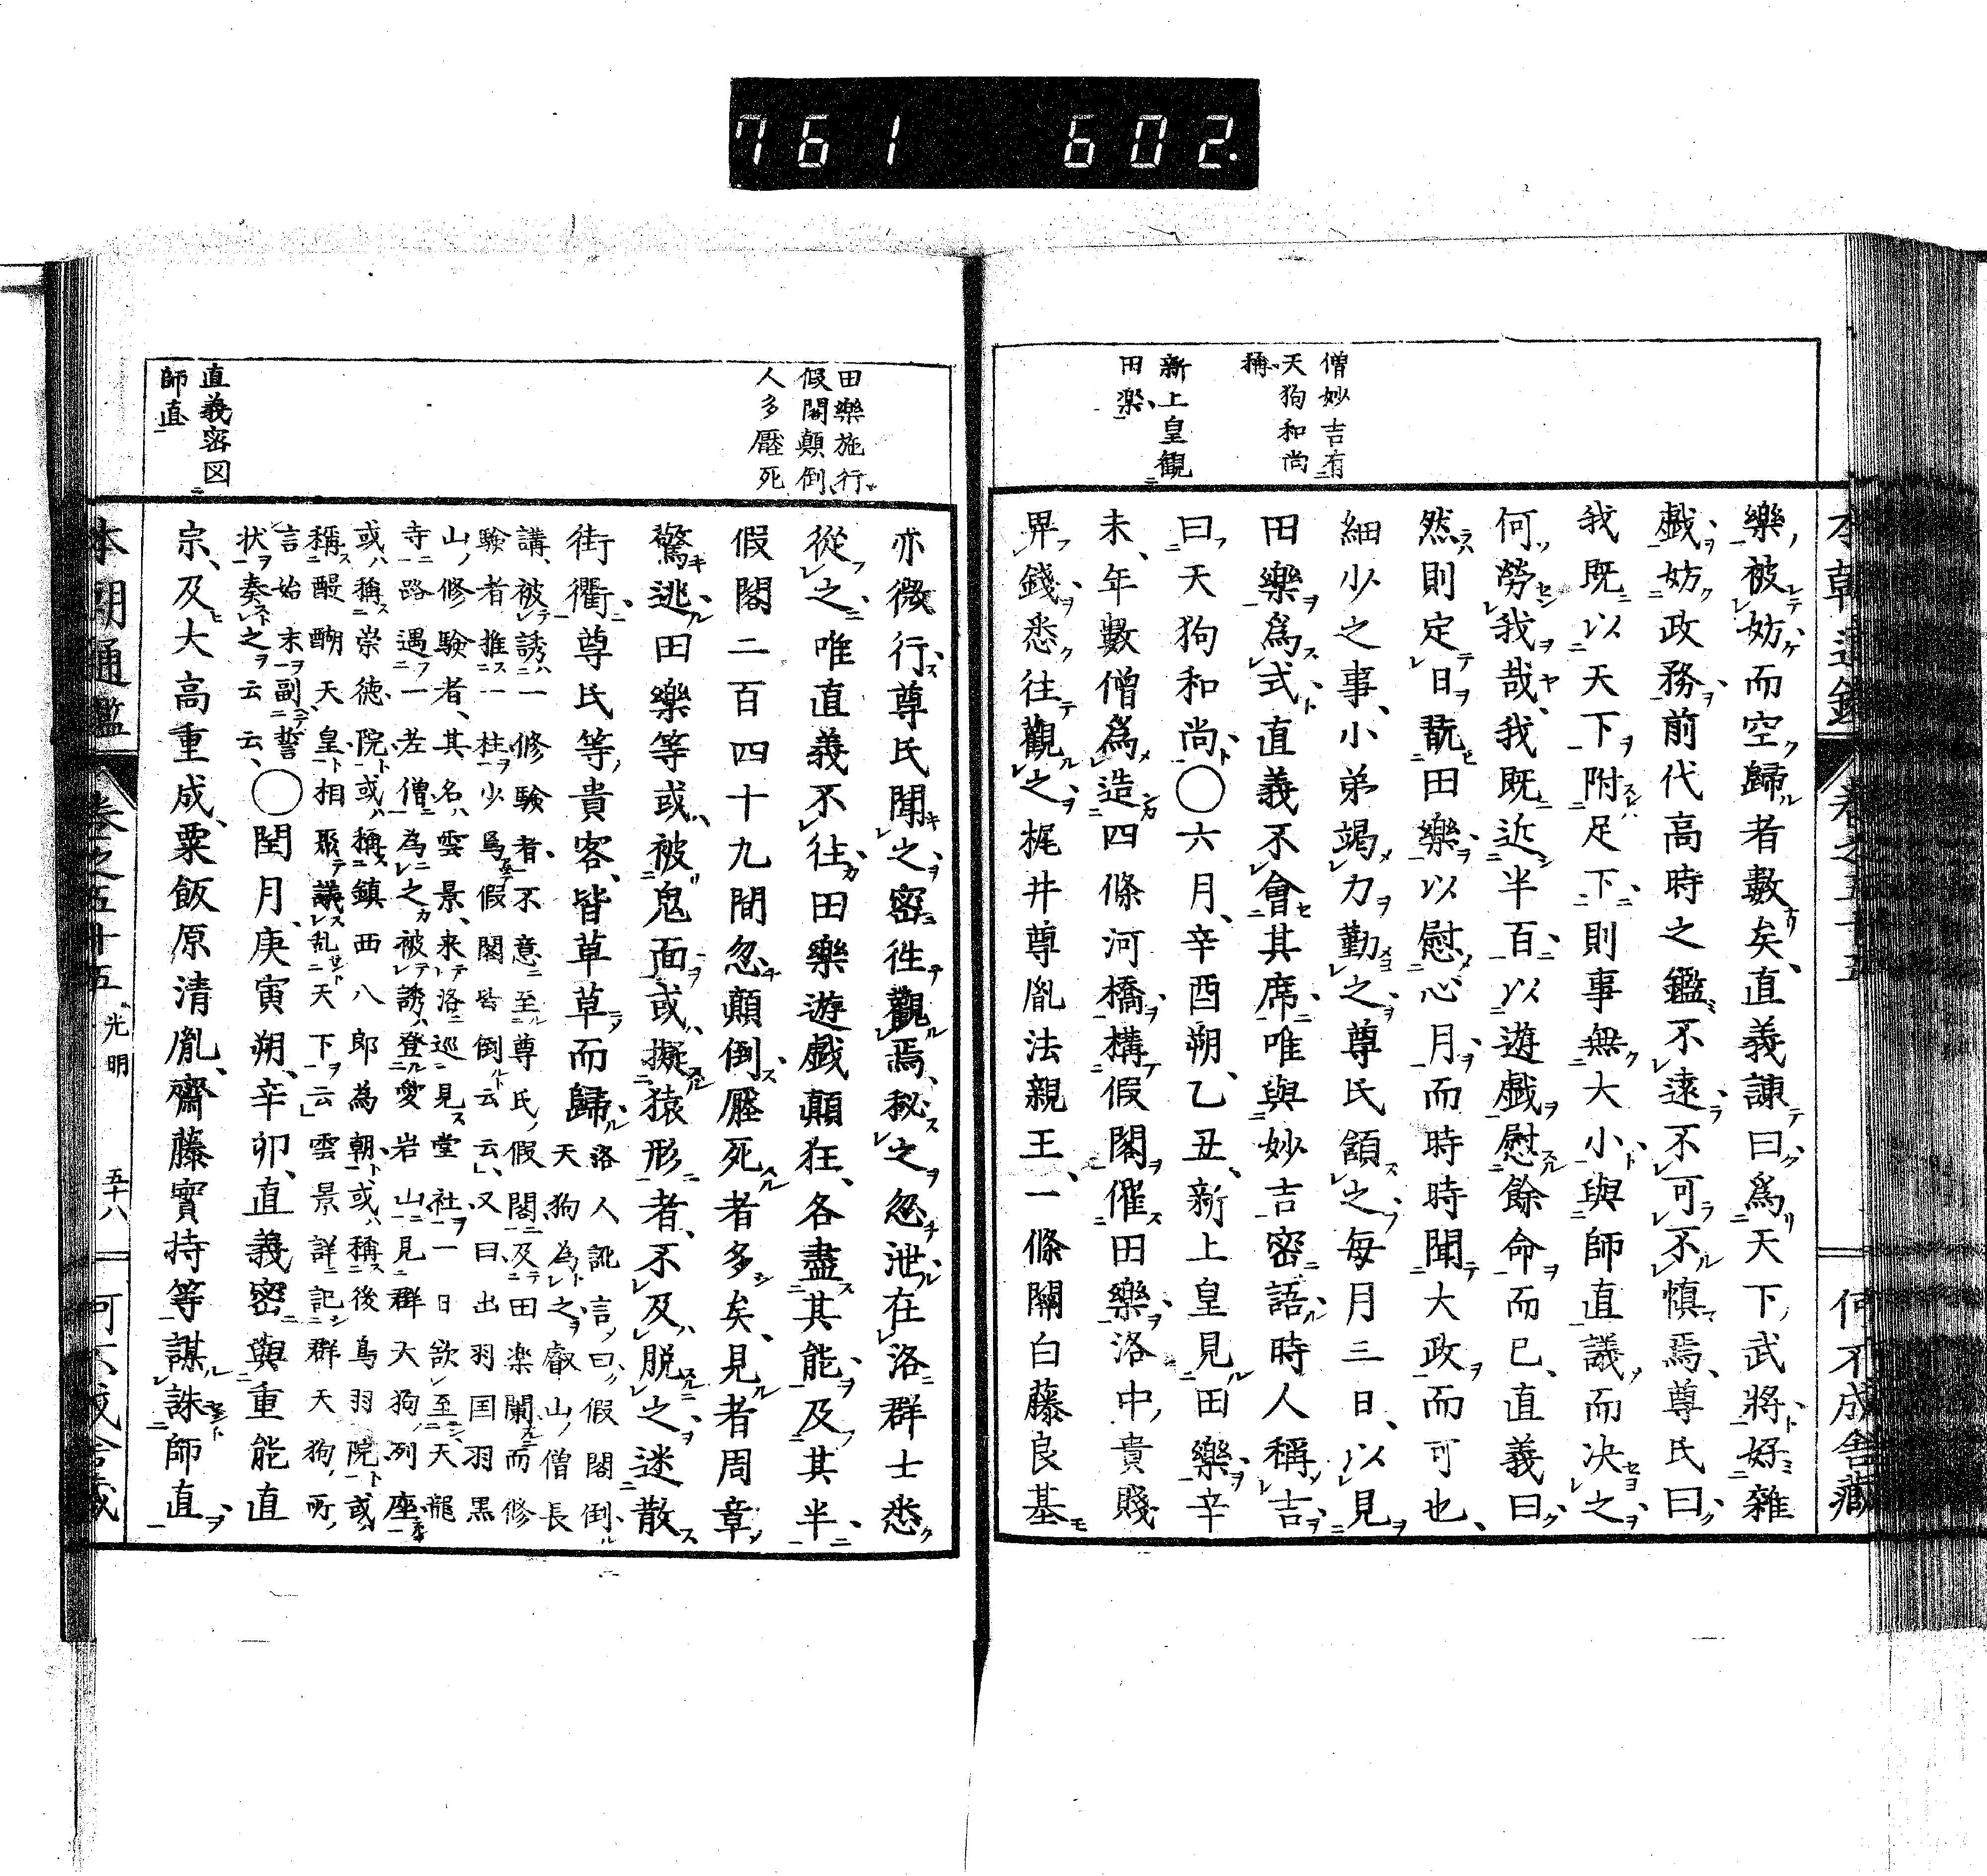 761 602.
本朝通鑑 卷之五十五 何不成舎蔵
僧妙吉有
天狗和尚
稱
新上皇観
田楽
樂被妨而空歸者數矣直義諫曰爲天下武將好雜
戲妨政務前代高時之鑑不遠不可不慎焉尊氏曰
我既以天下附足下則事無大小與師直議而决之
何勞我哉我既近半百以遊戲慰餘命而已直義曰
然則定日翫田樂以慰心月而時時聞大政而可也
細少之事小弟竭力勤之尊氏頷之每月三日以見
田樂爲式直義不會其席唯與妙吉密語時人稱吉
曰天狗和尚〇六月辛酉朔乙丑新上皇見田樂辛
未年數僧爲造四條河橋構假閣催田樂洛中貴賤
畀錢悉往觀之梶井尊胤法親王一條關白藤良基
田樂施行
假閣顛倒
人多壓死
直義密図
師直
亦微行尊氏聞之密徃觀焉秘之忽泄在洛群士悉
從之唯直義不往田樂遊戲顛狂各盡其能及其半
假閣二百四十九間忽顛倒壓死者多矣見者周章
驚逃田樂等或被鬼面或擬猿形者不及脱之迷散
街衢尊氏等貴客皆草草而歸
洛人訛言曰假閣倒
天狗為之叡山僧長
講被誘一修験者不意至尊氏假閣及田楽闌而修
験者推一柱少焉假閣皆倒云云又曰出羽国羽黒
山修験者其名雲景来洛巡見堂社一日欲至天龍
寺路遇一老僧為之被誘登愛岩山見群大狗列座
或稱崇徳院或稱鎮西八郎為朝或稱後鳥羽院或
稱醍醐天皇相聚議乱天下云雲景詳記群天狗所
言始末副誓
状奏之云云
〇閏月庚寅朔辛卯直義密與重能直
宗及大高重成粟飯原清胤齋藤實持等謀誅師直
本朝通鑑 卷之五十五 光明 五十八 何不成舎蔵